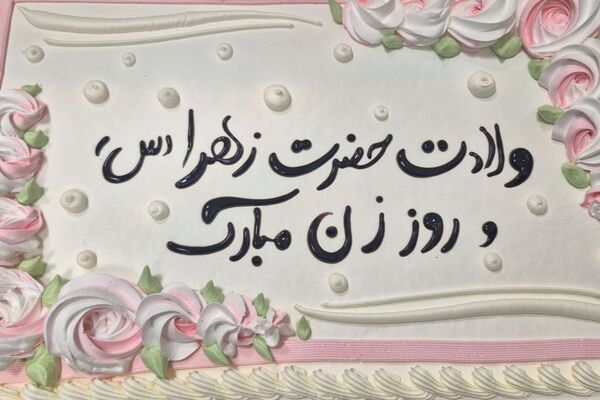 ولادت حضرت زهرا (س)
و روز زن مبارک